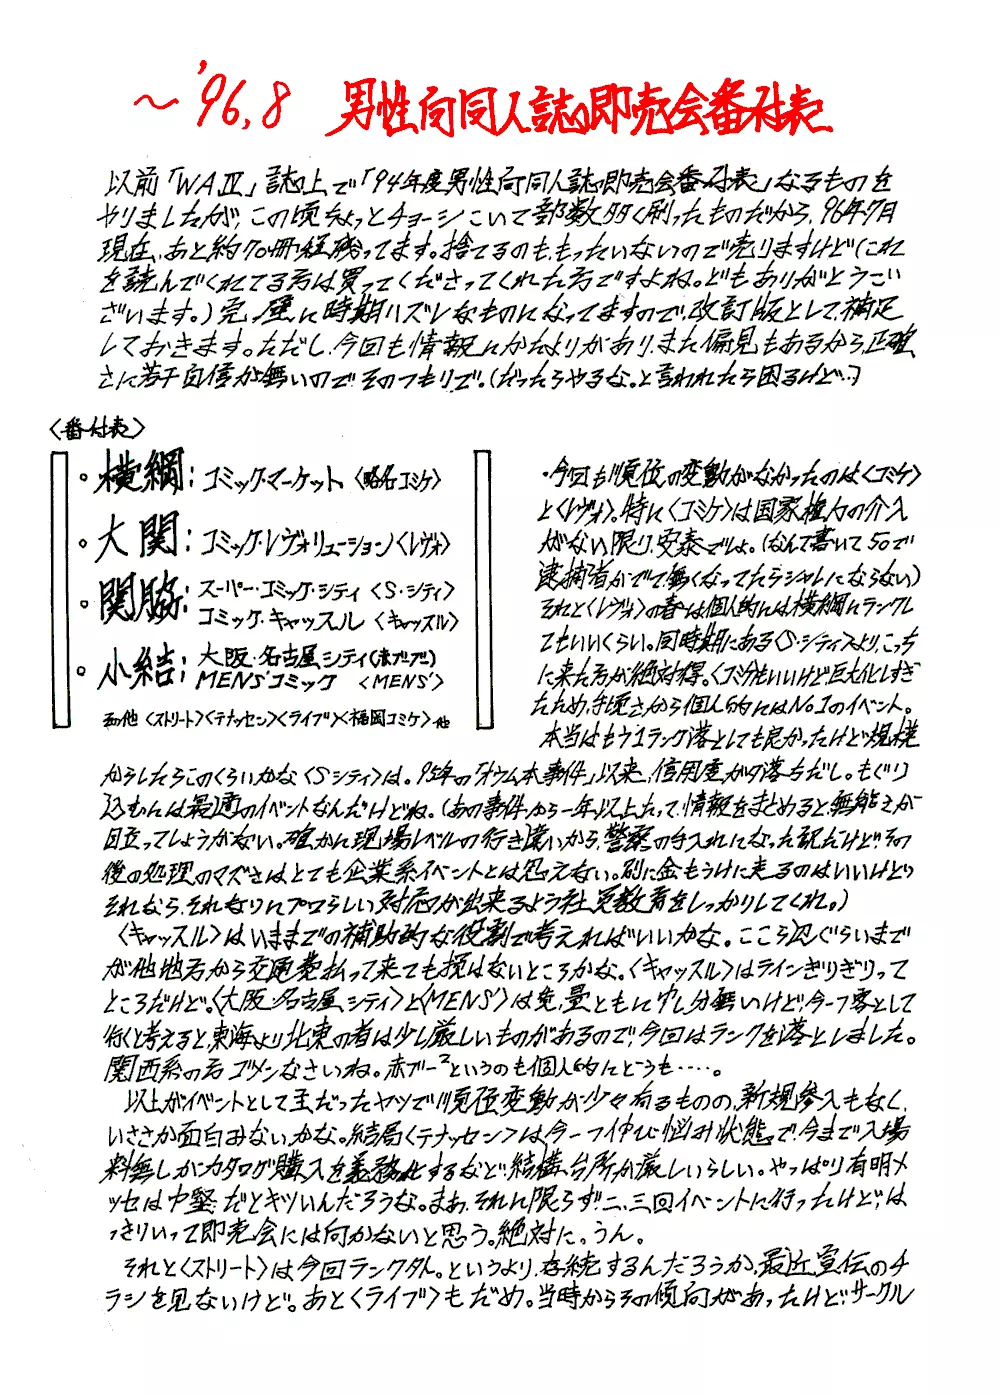 ~'96,8 男性向同人誌の即売会番付表
以前「WAⅣ」誌上で「94年度男性向同人誌即売会番付表」なるものを
やりましたが、この頃ちょっとチョーシこいて部数多く刷ったものだから、96年7月
現在、あと約70冊程残ってます。捨てるのももったいないので売りますけど(これ
を読んでくれてる方は買ってくださってくれた方ですよね。どもありがとうござ
ざいます。)完ぺきに時期ハズレなものになってますので、改訂版として、補足
しておきます。ただし、今回も情報にかたよりがあり、また偏見もあるから、正確
さに若干自信が無いので、そのつもりで。(だったらやるな。と言われたら困るけど…)
〈番付表〉
・横綱:コミック・マーケット〈略名コミケ〉
・大関:コミック・レヴォリューション〈レヴォ〉
・関脇:スーパー・コミック・シティ〈S・シティ〉
コミック・キャッスル〈キャッスル〉
・小結:大阪・名古屋シティ(赤ブーブー)
MENS'コミック〈MENS'〉
その他〈ストリート〉〈テナッセン〉〈ライブ〉〈福岡コミケ〉他
・今回も順位の変動がなかったのは〈コミケ〉
と〈レヴォ〉。特に〈コミケ〉は国家権力の介入
がない限り、安泰でしょ。(なんて書いて50で
逮捕者がでて無くなってたらシャレにならない)
それと〈レヴォ〉の春は個人的には横綱にランクし
てもいいくらい。同時期にある〈S・シティ〉より、こっち
に来た方が絶対得。〈コミケ〉もいいけど巨大化しすぎ
たため、手頃さから個人的にはNo.1のイベント。
本当はもう1ランク落としても良かったけど規模
からしたらこのくらいかな〈Sシティ〉は。95年の「オウム本事件」以来、信用度がた落ちだし。もぐり
込むんは最適のイベントなんだけどね。(あの事件から一年以上たって、情報をまとめると無能さが
目立ってしょうがない。確かに現場レベルの行き違いから、警察の手入れになった訳だけど、その
後の処理のマズさはとても企業系イベントとは思えない。別に金もうけに走るのはいいけど
それなら、それなりにプロらしい対応が出来るよう社員教育をしっかりしてくれ。)
〈キャッスル〉はいままでの補助的な役割で考えればいいかな。ここら辺ぐらいまで
が他地方から交通費払って来ても損はないところかな。〈キャッスル〉はラインぎりぎりって
ところだけど。〈大阪・名古屋シティ〉と〈MENS'〉は免、量ともに申し分無いけど、今一つ客として
行くと考えると、東海より北東の者は少し厳しいものがあるので、今回はランクを落としました。
関西系の方ゴメンなさいね。赤ブー²というのも個人的にどうも・・・・・。
以上がイベントとして主だったヤツで順位変動が少々有るものの、新規参入もなく、
いささか面白みないかな。結局〈テナッセン〉は、今一つ伸び悩み状態で、今まで入場
料無しがカタログ購入を義務化するなど、結構、台所が厳しいらしい。やっぱり有明メ
ッセは中堅だとキツいんだろうな。まあ、それに限らず、二、三回イベントに行ったけど、は
っきりいって即売会には向かないと思う。絶対に。うん。
それと〈ストリート〉は今回ランク外。というより、存続するんだろうか、最近、宣伝のチ
ラシを見ないけど。あと〈ライブ〉もだめ。当時からその傾向があったけど、サークル